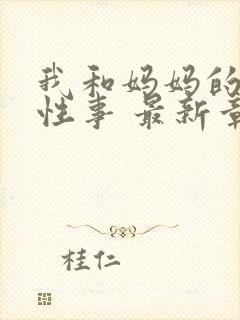 我和妈妈的
性事 最新章
桂仁